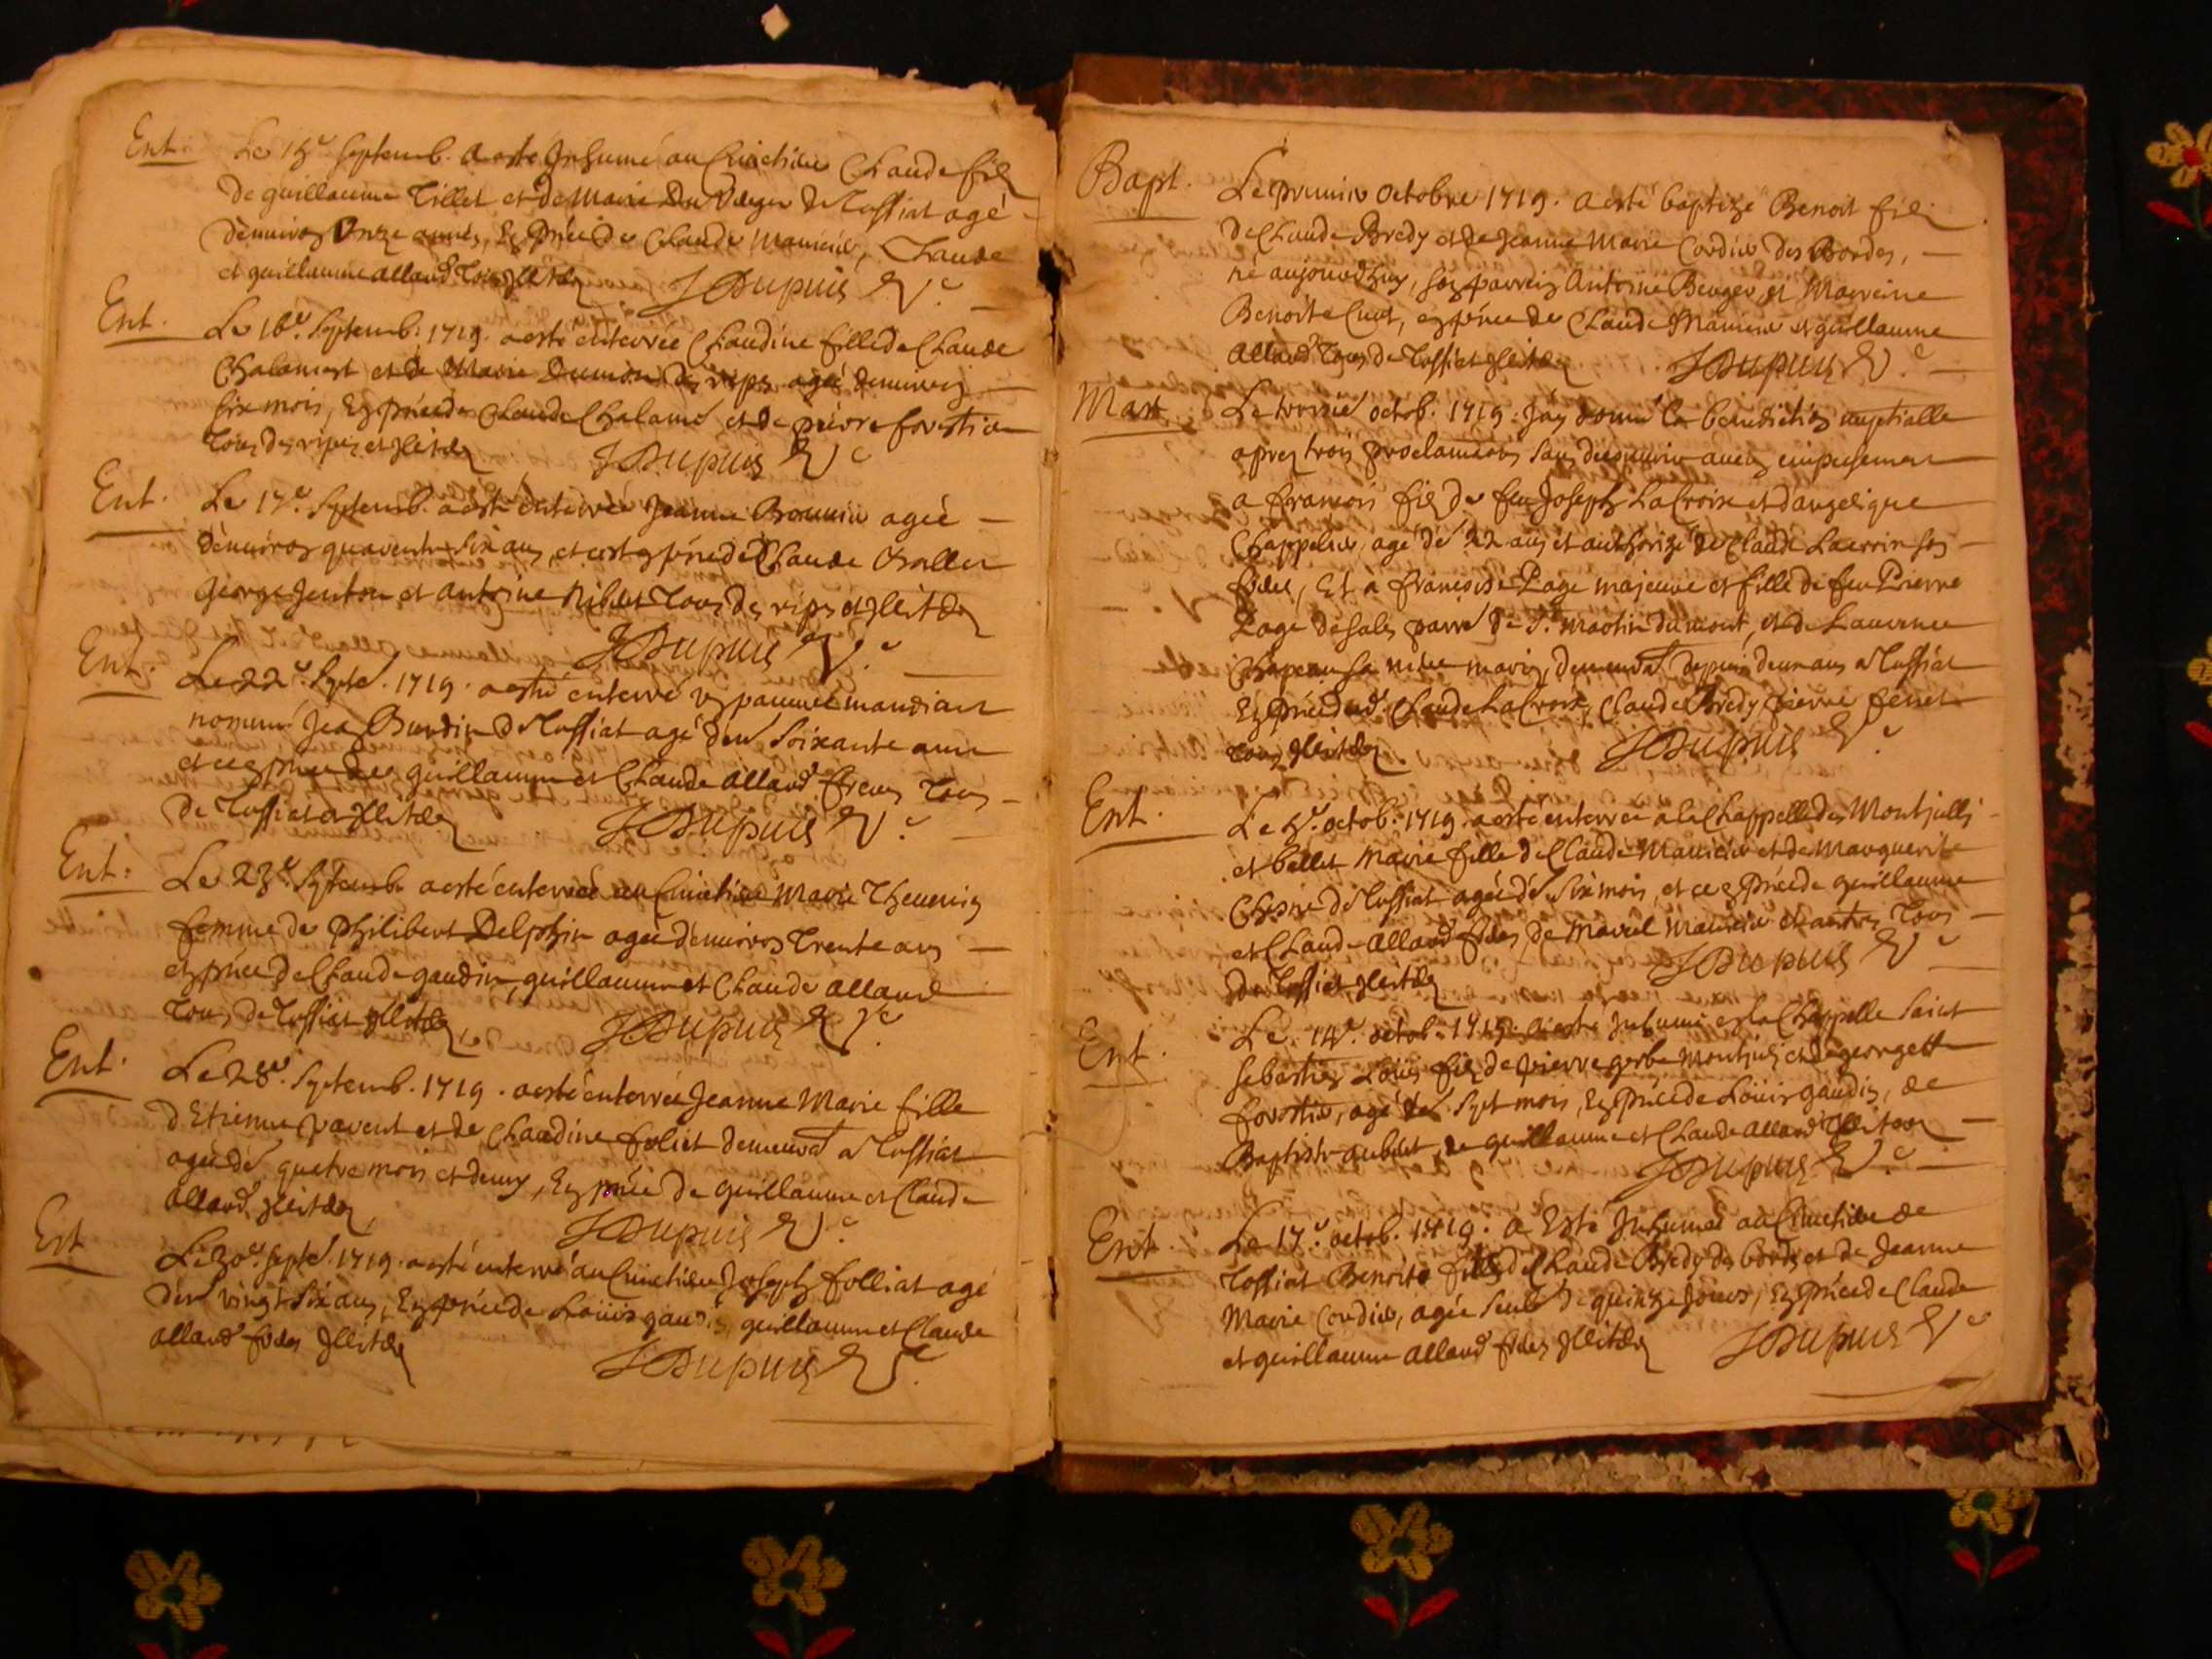 Ent. Le 15e septemb. a esté Inhumé au Cimetiere Claude fils
de guillaume Tillet et de Marie Du Verger de Tossiat agé
denviron Onze années, En pñce de Claude Manieu, Claude
et guillaume alland tous Illitérez JDupuis V.e
Ent. Le 16e Septemb. 1719. a esté enterrée Claudine fille de Claude
Chalamert et de Marie Dumon des rips agée denviron
six mois, En pñce de Claude Chalamel et de pierre forestier
tous des ripes et Illitérez JDupuis V.e
Ent. Le 17e Septemb. a esté enterrée Jeanne agée
denviron quarente six ans, et ce en pñce de Claude
George Jenton et antoine Ribolet tous des rips et Illitérez
JDupuis V.e
Ent. Le 22e Septe. 1719. a esté enterré un pauvre mandiant
nommé Jean Burdin de Tossiat agé den soixante ans
et ce en pñce de guillaume et Claude alland freres tous
de Tossiat et Illitérez JDupuis V.e
Ent: Le 23e Septemb. a esté enterrée au Cimetiere Marie Thevenin
femme de Philibert Delphin agée denviron Trente ans
en pñce de Claude gaudin, guillaume et Claude alland
tous de Tossiat Illitérez, JDupuis V.e
Ent. Le 28e Septemb. 1719. a esté enterrée Jeanne Marie fille
d'Etienne parent et de Claudine foliet demeurt a Tossiat
agée de quatre mois et demy, En pñce de guillaume et Claude
alland, Illitérez, JDupuis V.e
Ent Le 30e Septe. 1719. a esté enterré au Cimetiere Joseph folliat agé
den vingt six ans, En pñce de Loüis gaudin, guillaume et Claude
alland freres Illitérez JDupuis V.e
Bapt. Le premier Octobre 1719. a esté baptizé Benoit fils
de Claude Bredy et de Jeanne Marie Cordier des Bordes,
né aujourdhuy, son parrein Antoine Berger, et Marreine
Benoite Cuet, en pñce de Claude Manieu et guillaume
Alland tous de Tossiat Illitérez JDupuis V.e
Mart. Le troisie octob. 1719. Jay donné la benediction nuptialle
apres trois proclamations sans decouvrir aucun empechement
a francois fils de feu Joseph LaCroix et dangelique
Chappelu, agé de 22 ans et authorizé de Claude Lacroix son
frere, Et à francoise Page majeure et fille de feu Pierre
Page de Sales parre de St. Martin du mont, et de Laurence
Chapeau sa mere marie, demeurt depuis deux ans a Tossiat
En pñce de Claude LaCroix, Claude Bredy pierre ferret
tous Illitérez JDupuis V.e
Ent. Le 5e octob. 1719. a esté enterrée a la Chappelle des Montjulli
et bellet Marie fille de Claude Manieu et de Marguerite
Chosne de Tossiat agée de six mois, et ce en pñce de guillaume
et Claude Alland freres de Marcel Manieu et autres tous
de Tossiat Illitérez JDupuis V.e
Ent. Le 14e octob. 1719. a esté Inhumé en la Chappelle Saint
Sebastien Loüis fils de pierre gerbe Montjuli et de georgette
forestier, agé de sept mois, En pñce de Loüis gaudin, de
Baptiste aubolet, de guillaume et Claude alland Illiterez
JDupuis V.e
Ent. Le 17e octob. 1719. a Esté Inhumé au Cimetiere de
Tossiat Benoite fille de Claude Bredy des bordes et de Jeanne
Marie Cordier, agée seult de quinze Jours, En pñce de Claude
et guillaume alland freres Illitérez JDupuis V.e